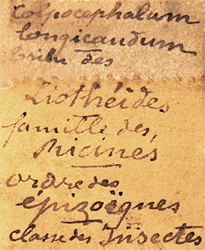 Colpocephalum
longicaudum
tribu des
Liothéides
famille des,
Ricines
ordre des
épizoïques
classe des Insectes